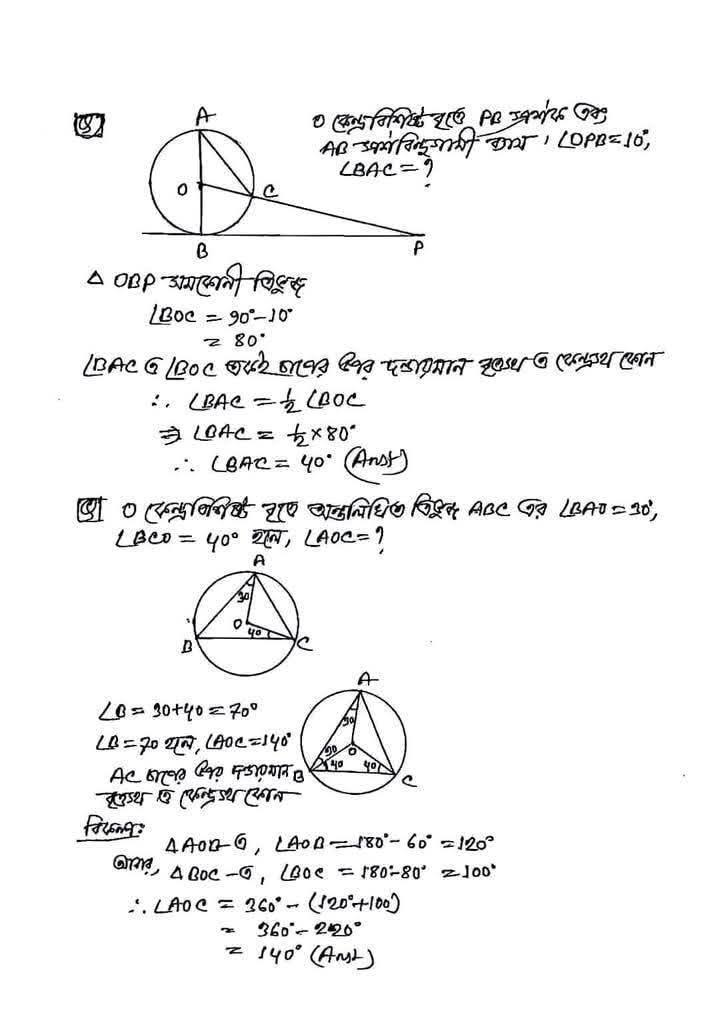 A
O
C
B
P
O কেন্দ্রবিশিষ্ট বৃত্তে PB স্পর্শক এবং
AB স্পর্শবিন্দুগামী ব্যাস। ∠OPB=10°,
∠BAC=?
△ OBP সমকোনী ত্রিভুজ
∠BOC = 90°-10°
= 80°
∠BAC ও ∠BOC একই চাপের উপর দন্ডায়মান বৃত্তস্থ ও কেন্দ্রস্থ কোন
∴ ∠BAC = ½ ∠BOC
⇒ ∠BAC = ½×80°
∴ ∠BAC = 40° (Ans)
O কেন্দ্রবিশিষ্ট বৃত্তে অন্তর্লিখিত ত্রিভুজ ABC এর ∠BAO=30°,
∠BCO = 40° হলে, ∠AOC=?
A
30
O
40
B
C
A
30
O
30
40
40
B
C
∠B = 30+40 = 70°
∠B=70 হলে, ∠AOC=140°
AC চাপের উপর দন্ডায়মান
বৃত্তস্থ ও কেন্দ্রস্থ কোন
বিকল্প:
△AOB-এ, ∠AOB=180°-60°=120°
আবার, △BOC-এ, ∠BOC = 180°-80° =100°
∴ ∠AOC = 360°-(120°+100°)
= 360°-220°
= 140° (Ans)